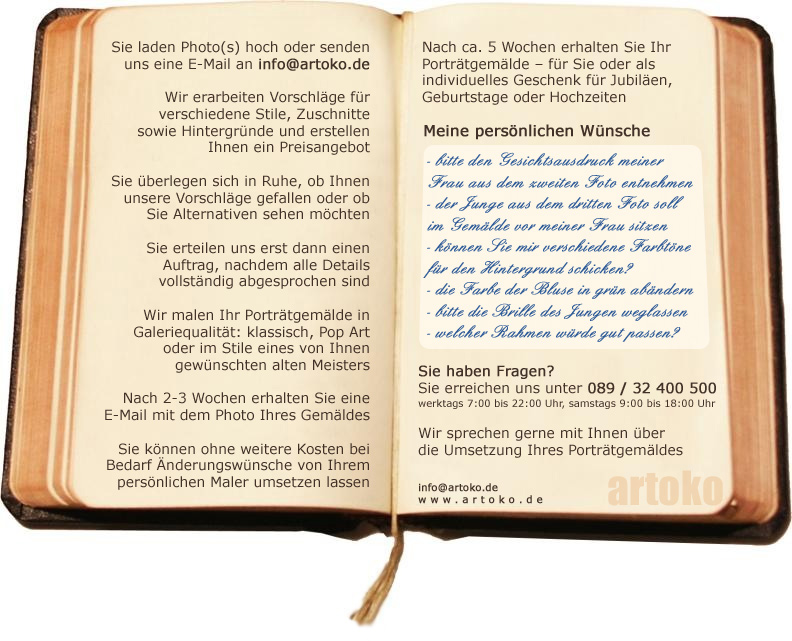 Sie laden Photo(s) hoch oder senden
uns eine E-Mail an info@artoko.de
Wir erarbeiten Vorschläge für
verschiedene Stile, Zuschnitte
sowie Hintergründe und erstellen
Ihnen ein Preisangebot
Sie überlegen sich in Ruhe, ob Ihnen
unsere Vorschläge gefallen oder ob
Sie Alternativen sehen möchten
Sie erteilen uns erst dann einen
Auftrag, nachdem alle Details
vollständig abgesprochen sind
Wir malen Ihr Porträtgemälde in
Galeriequalität: klassisch, Pop Art
oder im Stile eines von Ihnen
gewünschten alten Meisters
Nach 2-3 Wochen erhalten Sie eine
E-Mail mit dem Photo Ihres Gemäldes
Sie können ohne weitere Kosten bei
Bedarf Änderungswünsche von Ihrem
persönlichen Maler umsetzen lassen
Nach ca. 5 Wochen erhalten Sie Ihr
Porträtgemälde – für Sie oder als
individuelles Geschenk für Jubiläen,
Geburtstage oder Hochzeiten
Meine persönlichen Wünsche
- bitte den Gesichtsausdruck meiner
Frau aus dem zweiten Foto entnehmen
- der Junge aus dem dritten Foto soll
im Gemälde vor meiner Frau sitzen
- können Sie mir verschiedene Farbtöne
für den Hintergrund schicken?
- die Farbe der Bluse in grün abändern
- bitte die Brille des Jungen weglassen
- welcher Rahmen würde gut passen?
Sie haben Fragen?
Sie erreichen uns unter 089 / 32 400 500
werktags 7:00 bis 22:00 Uhr, samstags 9:00 bis 18:00 Uhr
Wir sprechen gerne mit Ihnen über
die Umsetzung Ihres Porträtgemäldes
info@artoko.de
www.artoko.de
artoko